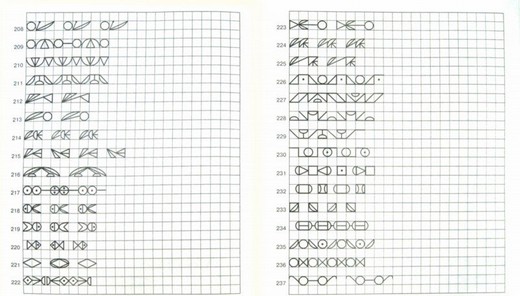 208
209
210
211
212
213
214
215
216
217
218
219
220
221
222
223
224
225
226
227
228
229
230
231
232
233
234
235
236
237